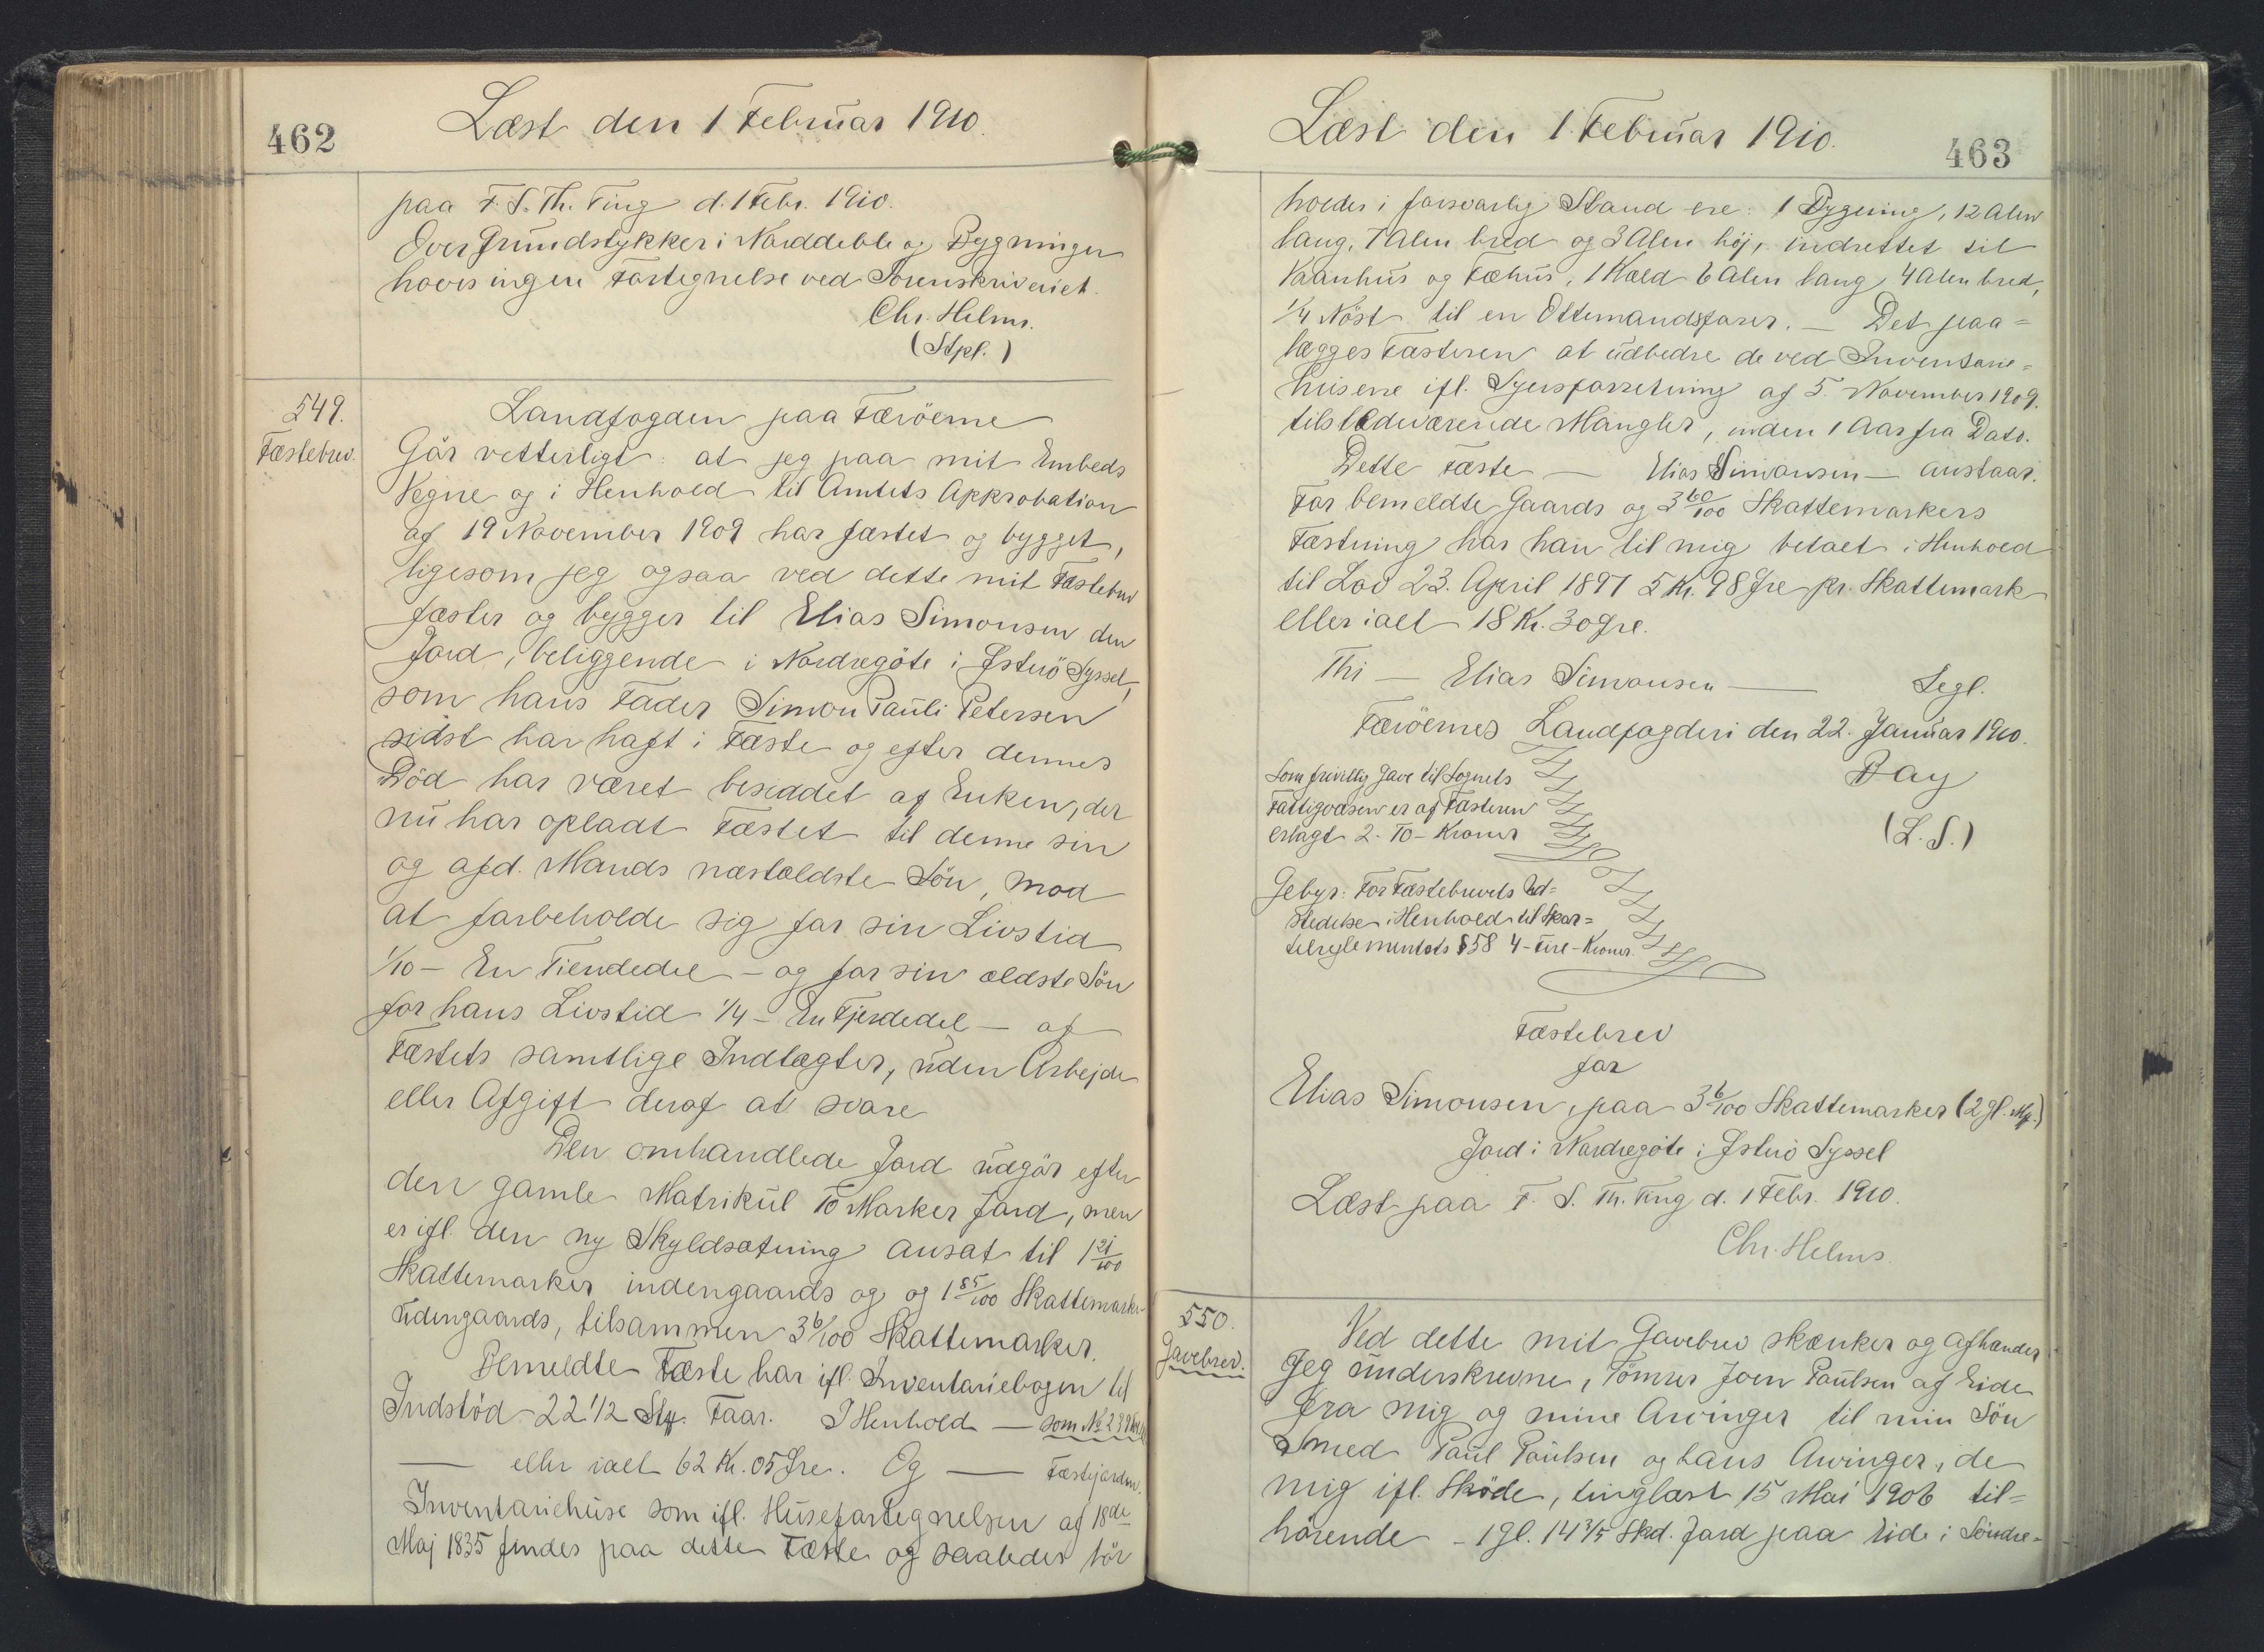 462
Læst den 1 Februar 1910.
paa F. S. Th. Ting d. 1 Febr. 1910.
Over Grundstykker i Norddeble og Bygninger
haves ingen Fortegnelse ved Sorenskriveriet.
Chr. Helms.
(Stpl.)
549.
Fæstebrev.
Landfogden paa Færöerne
Gör vetterligt: at jeg paa mit Embeds
Vegne og i Henhold til Amtets Approbation
af 19 November 1909 har fæstet og bygget,
ligesom jeg ogsaa ved dette mit Fæstebrev
fæster og bygger til Elias Simonsen den
Jord, beliggende i Nordregöte i Østerö Syssel,
som hans Fader Simon Pauli Petersen
sidst har haft i Fæste og efter dennes
Död har været besiddet af Enken, der
nu har opladt Fæstet til denne sin
og afd. Mands næstældste Sön, mod
at forbeholde sig for sin Livstid
1/10 - En Tiendedel - og for sin ældste Sön
for hans Livstid 1/4 - En Fjerdedel - af
Fæstets samtlige Indtægter, uden Arbejde
eller Afgift deraf at svare
Den omhandlede Jord udgör efter
den gamle Matrikul To Marker Jord, men
er ifl. den ny Skyldsætning ansat til 1 21/100
Skattemarker indengaards og og 1 85/100 Skattemarker
udengaards, tilsammen 3 6/100 Skattemarker.
Bemeldte Fæste har ifl. Inventariebogen til
Indstöd 22 1/2 Stk. Faar. I Henhold — som No 239
— eller ialt 62 Kr. 05 Øre. Og — Fæstejorden.
Inventariehuse som ifl. Husefortegnelsen af 18de
Maj 1835 findes paa dette Fæste og saaledes bör
Læst den 1 Februar 1910.
463
holdes i forsvarlig Stand ere: 1 Bygning, 12 Alen
lang, 7 Alen bred og 3 Alen höj, indrettet til
Vaanhus og Fæhus, 1 Kæld 6 Alen lang 4 Alen bred,
1/4 Nöst til en Ottemandsfarer. — Det paa=
lægges Fæsteren at udbedre de ved Inventarie=
husene ifl. Synsforretning af 5. November 1909.
tilstedeværende Mangler, inden 1 Aar fra Dato.
Dette Fæste — Elias Simonsen — anstaar.
For bemeldte Gaards og 3 60/100 Skattemarkers
Fæstning har han til mig betalt i Henhold
til Lov 23. April 1897 5 Kr. 98 Øre pr. Skattemark
eller ialt 18 Kr. 30 Øre.
Thi — Elias Simonsen — Segl.
Færöernes Landfogderi den 22. Januar 1910.
Bay
(L. S.)
Som frivillig Gave til Sognets
Fattigvæsen er af Fæsteren
erlagt 2 - To - Kroner
Gebyr: For Fæstebrevets Ud=
stedelse i Henhold til Spor=
telreglementets § 58 4 - Fire - Kroner.
Fæstebrev
for
Elias Simonsen, paa 3 6/100 Skattemarker (2 gl. Mk.)
Jord i Nordregöte i Østerö Syssel
Læst paa F. S. Th. Ting d. 1 Febr. 1910.
Chr. Helms.
550.
Gavebrev.
Ved dette mit Gavebrev skænker og afhænder
Jeg underskrevne, Tömrer Joen Paulsen af Eide
fra mig og mine Arvinger til min Sön
Smed Paul Paulsen og hans Arvinger, de
mig ifl. Sköde, tinglæst 15 Mai 1906 til=
hörende - 1 Gl. 14 3/5 Skd. Jord paa Eide i Söndre-